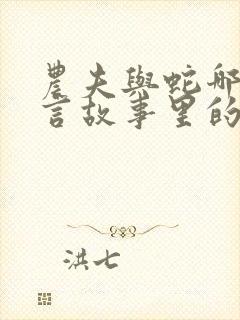 農夫與蛇那
言故事里的
洪七